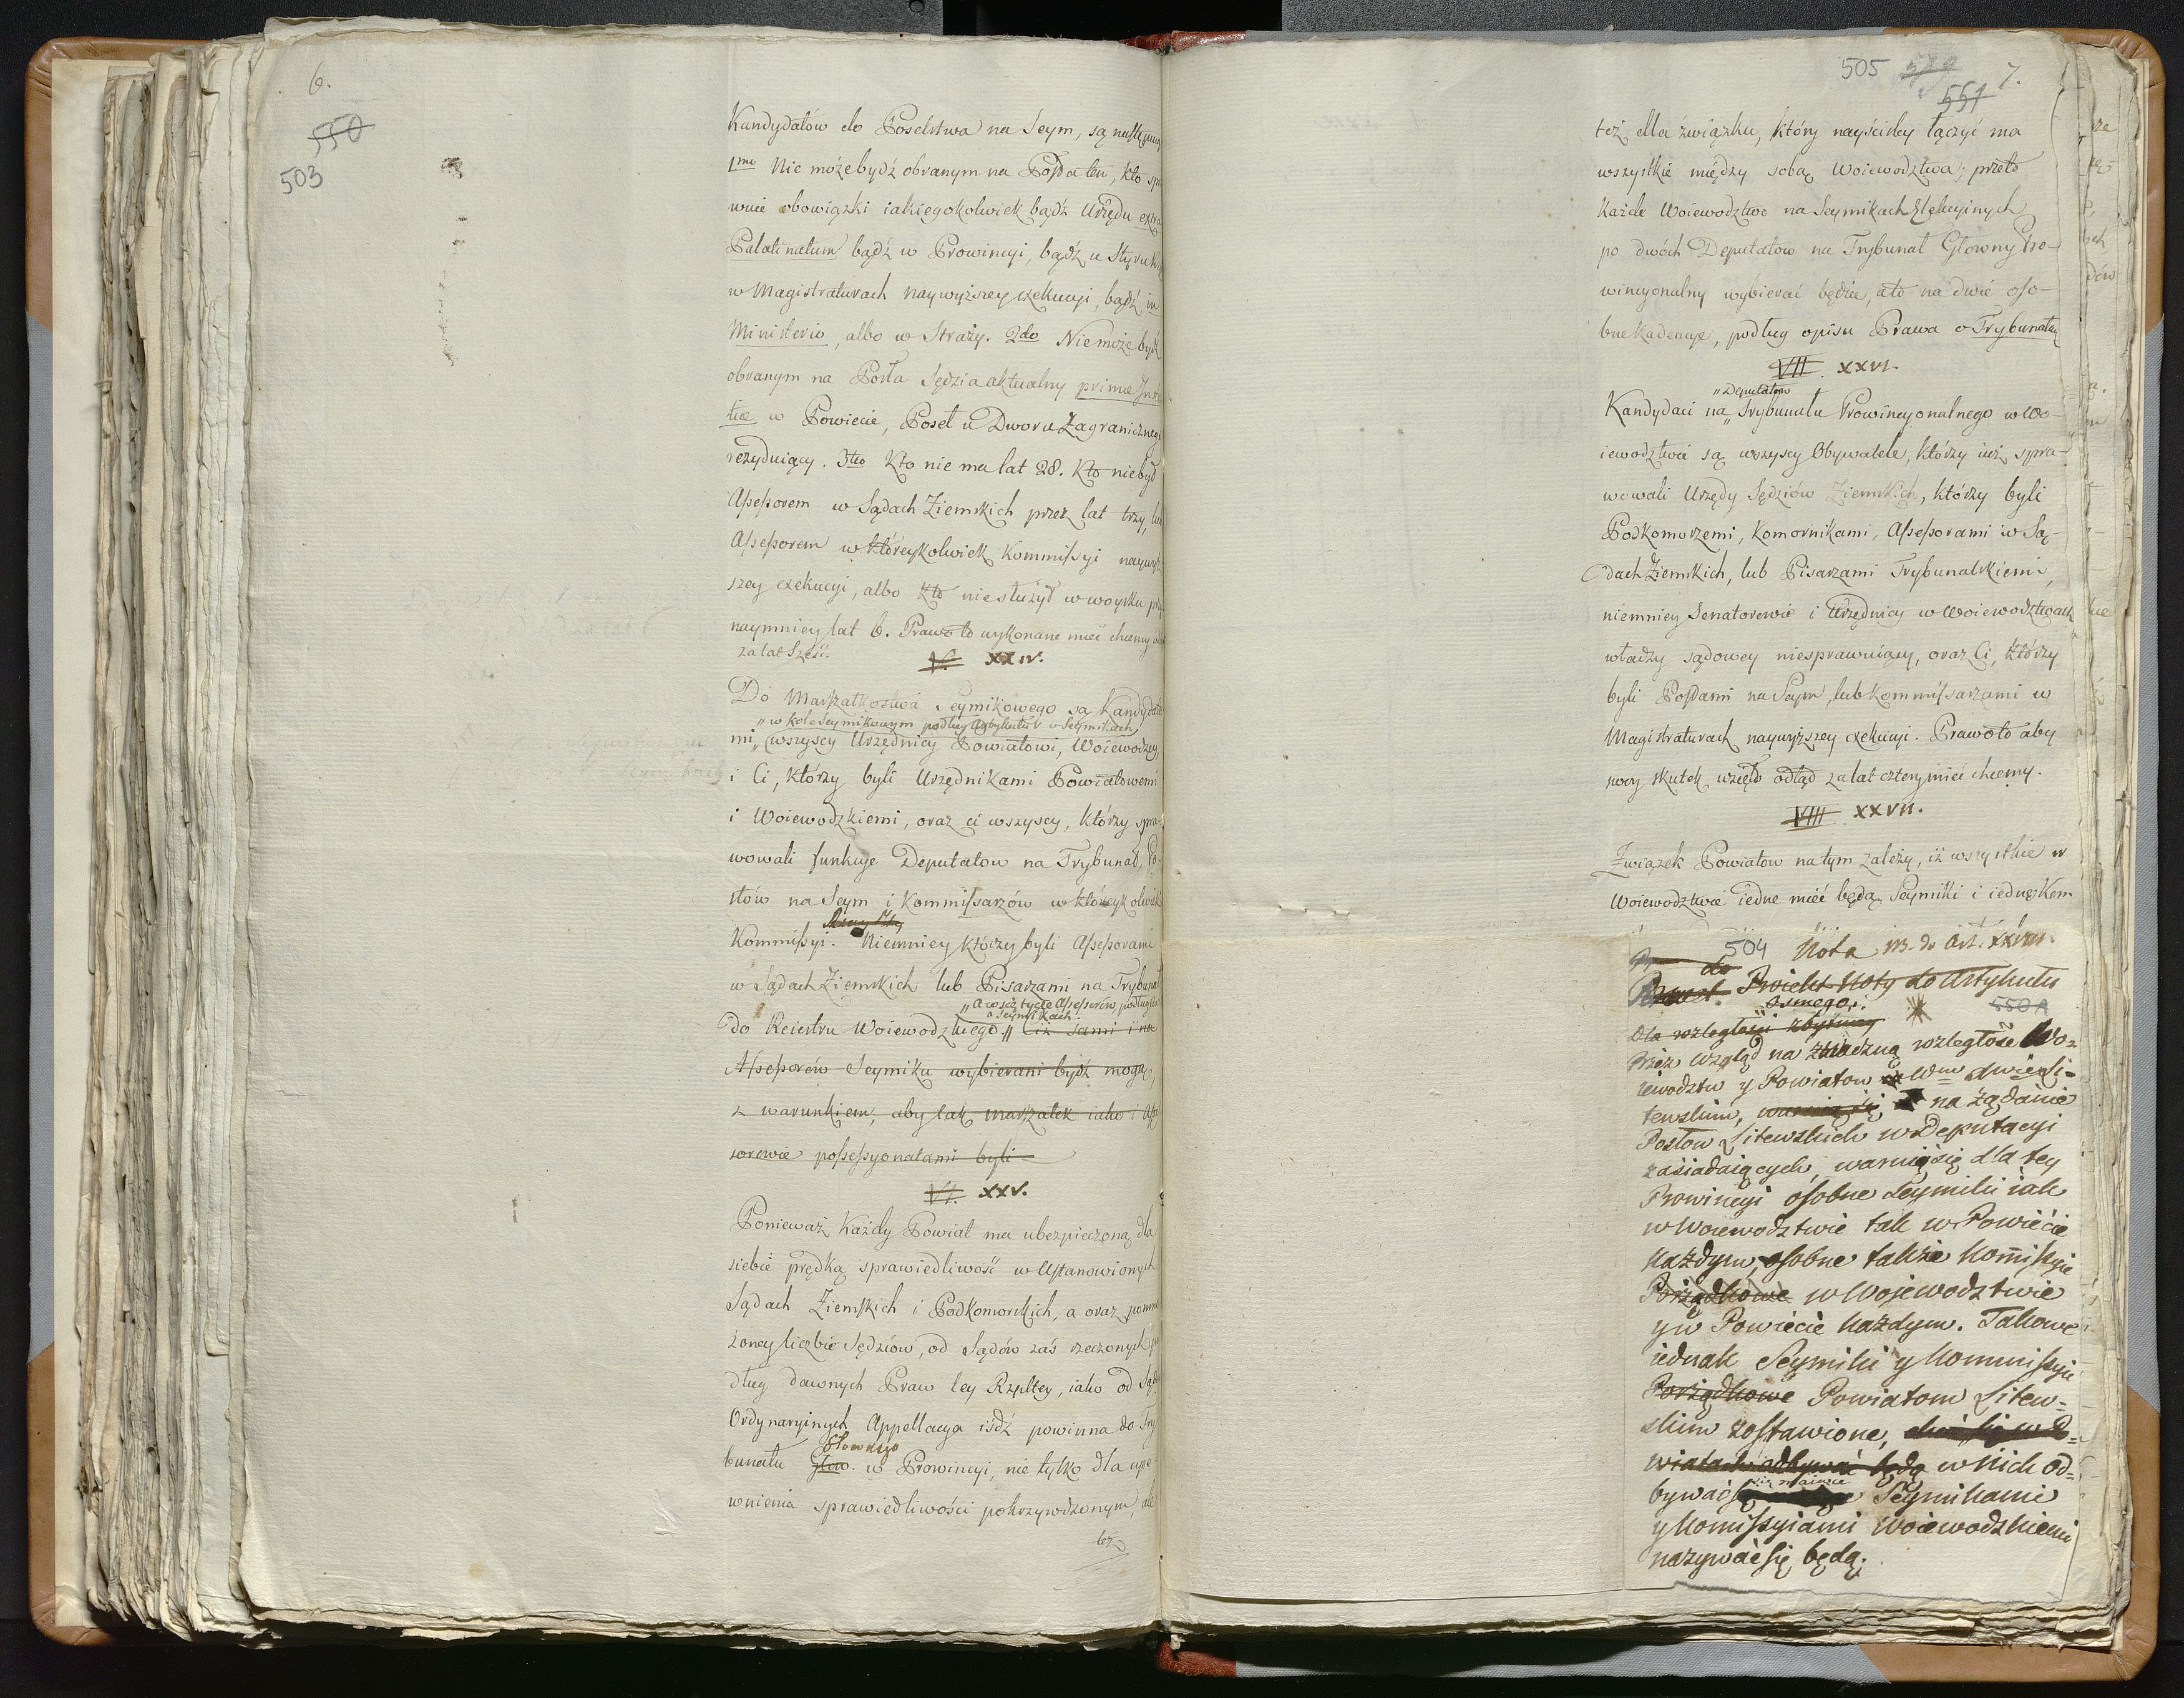 6.
550
503
Kandydatów do Poselstwa na Seym, są
1mo Nie może bydź obranym na Posła ten, kto
wuie obowiązki iakiegokolwiek bądź Urzędu extra
Palatinatum bądź w Prowincyi, bądź u
w Magistraturach naywyższey exekucyi, bądź in
Ministerio, albo w Straży. 2do Nie może bydź
obranym na Posła Sędzia aktualny primæ
w Powiecie, Poseł u Dworu Zagranicznego
rezyduiący. 3tio Kto nie ma lat 28. Kto nie był
Assessorem w Sądach Ziemskich przez lat trzy, lub
Assessorem w któreykolwiek Kommissyi naywyż
szey exekucyi, albo kto nie służył w woysku
naymniey lat 6. Prawo to wykonane mieć chcemy
za lat sześć.
V. XXIV.
Do Marszałkostwa Seymikowego są Kandydata
" w kole Seymikowym podług Artykułu V o Seymikach
mi " wszyscy Urzędnicy Powiatowi, Woiewodzcy,
i Ci, którzy byli Urzędnikami Powiatowemi
i Woiewodzkiemi, oraz ci wszyscy, którzy spra-
wowali funkcye Deputatow na Trybunał, Po-
słów na Seym i Kommissarzów w któreykolwiek
Kommissyi. Niemniey którzy byli Assessorami
w Sądach Ziemskich lub Pisarzami na Trybunał
" a wszczycie Assessorów podług
o Seymikach.
do Reiestru Woiewodzkiego. " ciż sami i na
Assessorów Seymiku wybierani bydź mogą,
z warunkiem, aby tak Marszałek iako i Asse
sorowie possessyonatami byli
VI. XXV.
Ponieważ Każdy Powiat ma ubezpieczoną dla
siebie prędką sprawiedliwość w Ustanowionych
Sądach Ziemskich i Podkomorskich, a oraz pomno
żoney liczbie Sędziów, od Sądów zaś rzeczonych
dług dawnych Praw tey Rzpltey, iako od
Ordynaryinych Appellacya iśdź powinna do Try
Głownego
bunału Głow. w Prowincyi, nie tylko dla upe
wnienia sprawiedliwości pokrzywdzonym, ale
też
505
551
7.
też dla związku, który nayściśley łączyć ma
wszystkie między sobą Woiewodztwa; przeto
Każde Woiewodztwo na Seymikach Elekcyinych
po dwóch Deputatow na Trybunał Główny Pro-
wincyonalny wybierać będzie, a to na dwie oso-
bne kadencye, podług opisu Prawa o Trybunałach
VII XXVI.
" Deputatow
Kandydaci na " Trybunału Prowincyonalnego w Wo-
iewodztwie są wszyscy Obywatele, którzy iuż spra-
wowali Urzędy Sędziów Ziemskich, którzy byli
Podkomorzemi, Komornikami, Assessorami w Są-
dach Ziemskich, lub Pisarzami Trybunalskiemi,
niemniey Senatorowie i Urzędnicy w Woiewodztwach
władzy sądowey niesprawuiący, oraz Ci, którzy
byli Posłami na Seym, lub Kommissarzami w
Magistraturach naywyższey exekucyi. Prawo to aby
swoy skutek wzięło odtąd za lat cztery mieć chcemy.
VIII XXVII.
Związek Powiatow na tym zależy, iż wszystkie w
Woiewodztwie iedne mieć będą Seymiki i iednę Kom
504 Nota do Art. XXVIII.
do
Proiekt Noty do Artykułu
osmego.
550A
Dla rozległości zbytniey
Przez wzgląd na rozległość Wo=
iewodztw y Powiatow w Wm Xwie Li=
tewskim, na żądanie
Posłow Litewskich w Deputacyi
zasiadaiących, waruie się dla tey
Prowincyi osobne Seymiki iak
w Woiewodztwie tak w Powiecie
każdym, osobne także Kommissyie
Porządkowe w Wojewodztwie
y w Powiecie każdym. Takowe
iednak Seymiki y Kommissyie
Porządkowe Powiatom Litew=
skim zostawione,
wiatach odbywać będą w nich od=
bywać się maiące Seymikami
y Komissyiami Woiewodzkiemi
nazywać się będą.